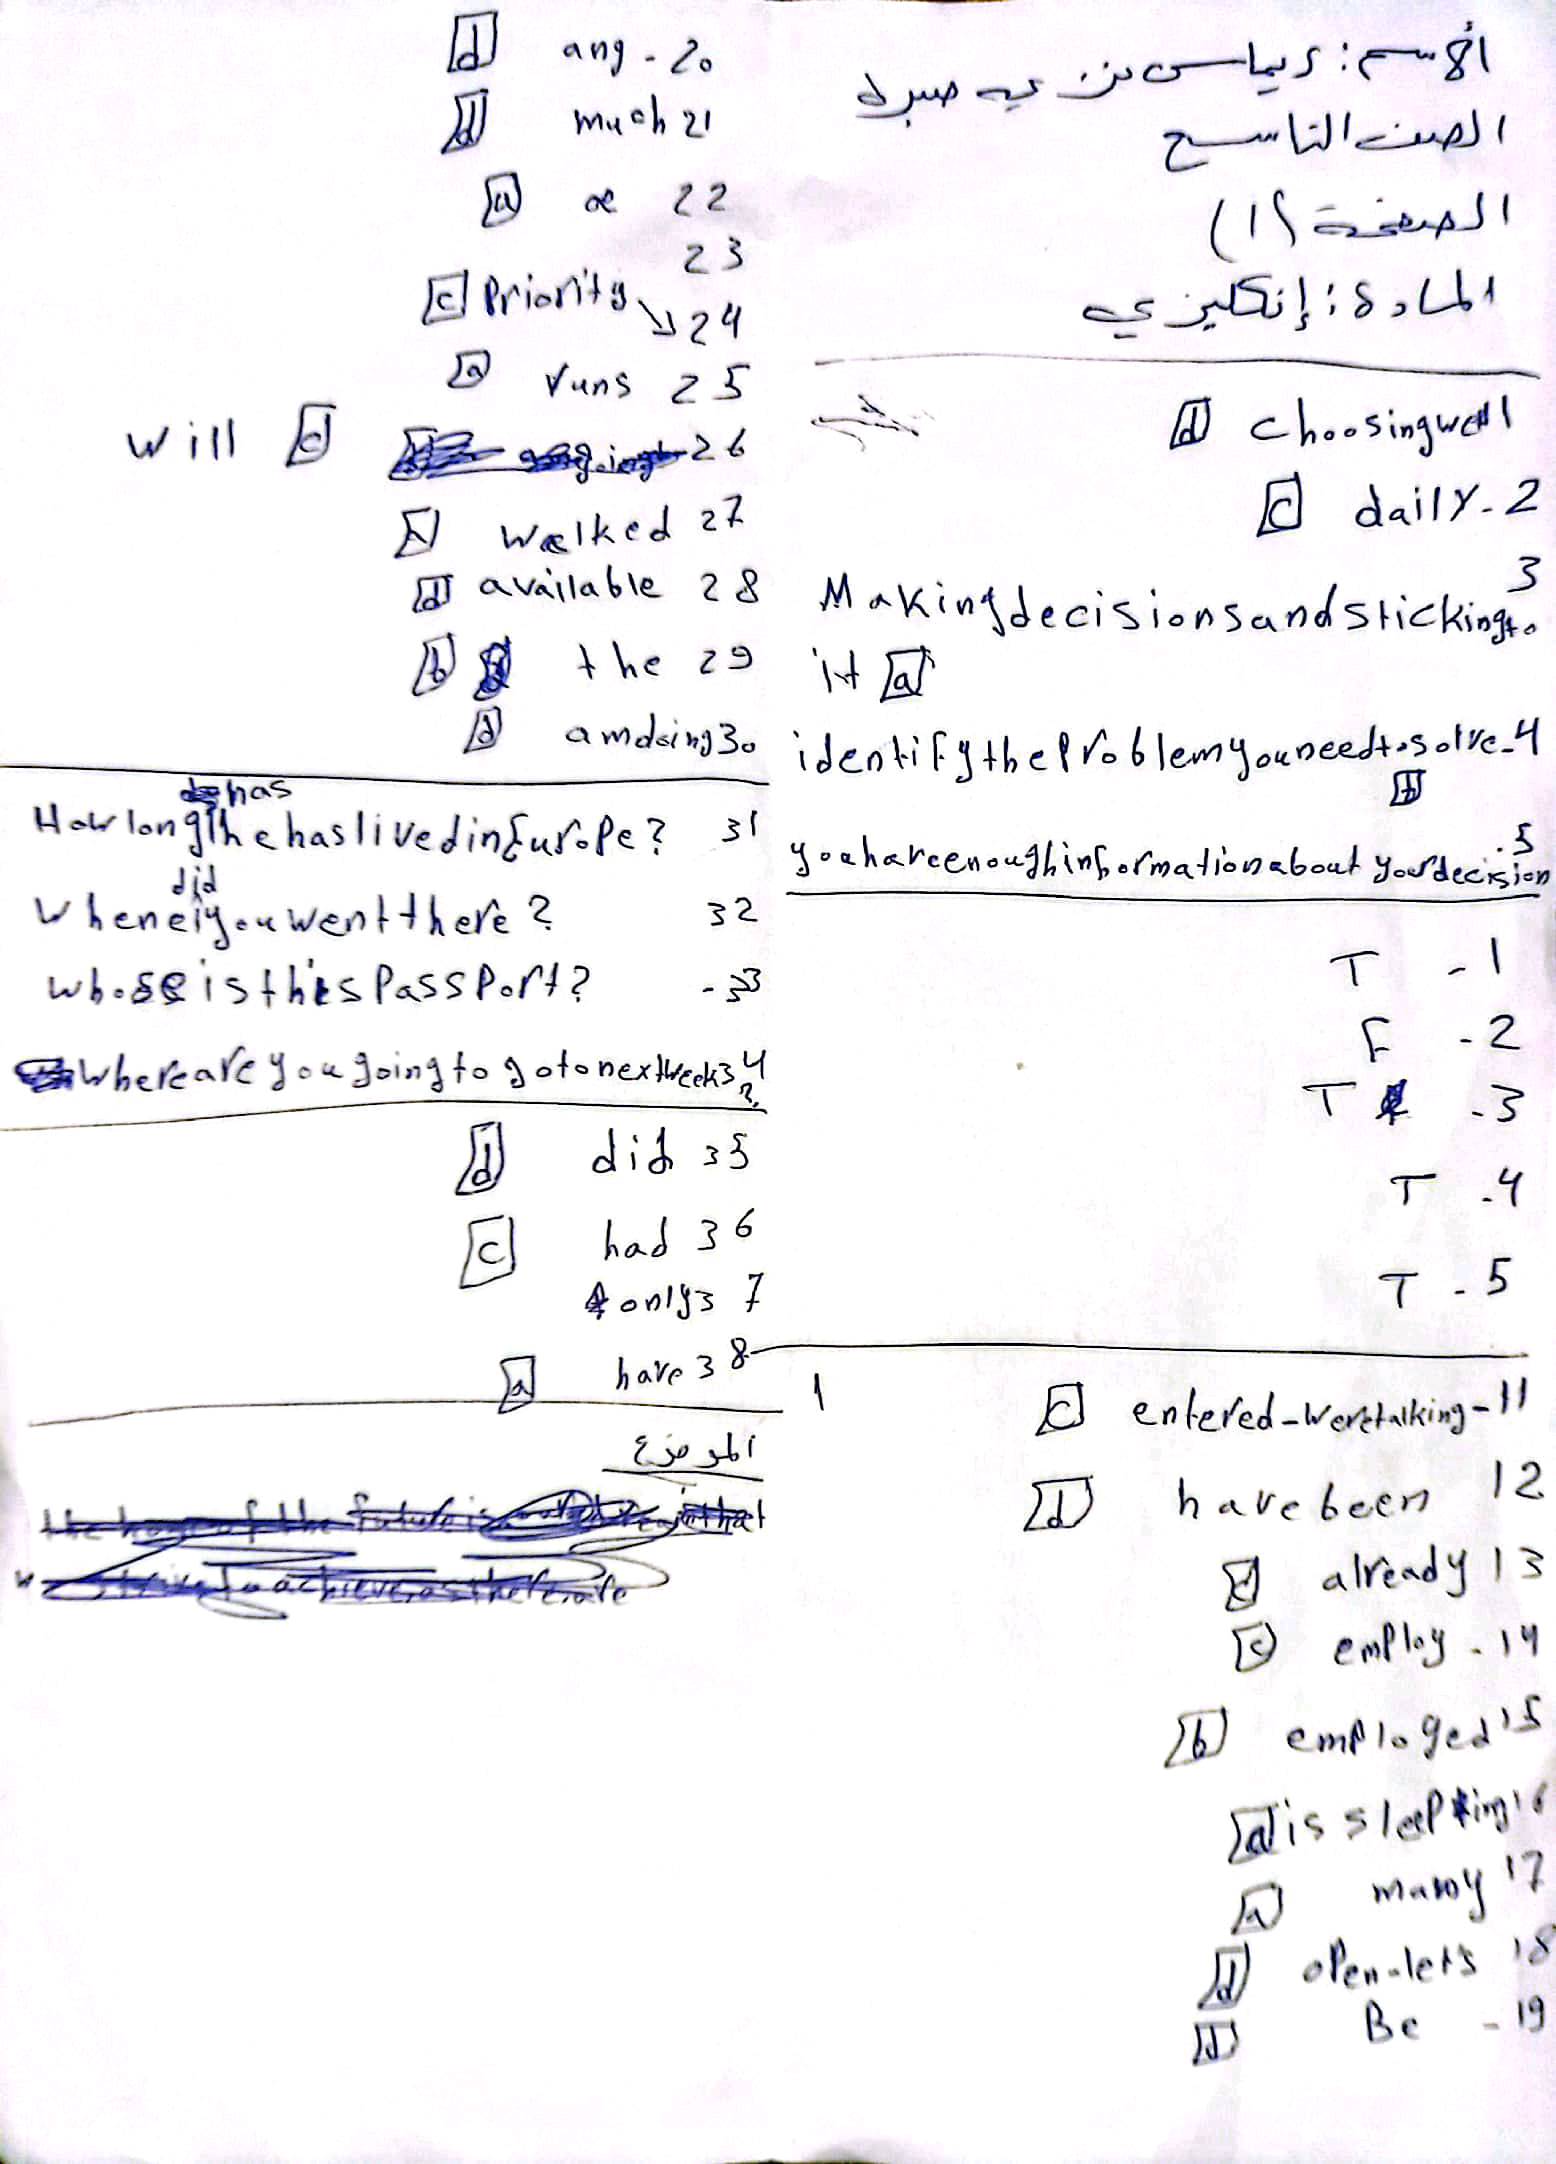 الأسم: ديماس نزيه صبره
الصف التاسع
الصفحة (1)
المادة: إنكليزي
d choosing well 1
c daily - 2
3
Making decisions and sticking to
it a
identify the problem you need to solve - 4
b
5
you have enough information about your decision
T - 1
F - 2
T - 3
T - 4
T - 5
1
c entered - were talking - 11
d have been 12
c already 13
c employ - 14
b employed 15
a is sleeping 16
a many 17
d open - let's 18
d Be - 19
d any - 20
d much 21
a a 22
23
c Priority 24
a runs 25
will d 26
a walked 27
d available 28
b the 29
d am doing 30
has
How long he has lived in Europe? 31
did
When you went there? 32
whose is this Passport? - 33
where are you going to go to next week 34
?
d did 35
c had 36
only 37
a have 38
الموضوع